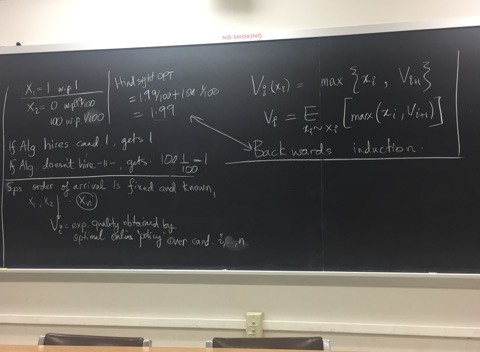 NO SMOKING
X₁ = 1 w.p. 1
X₂ = 0 w.p. 99/100
100 w.p. 1/100
Hindsight OPT
= 1·99/100 + 100·1/100
= 1.99
If Alg hires cand. 1, gets 1
If Alg. doesn't hire -11-, gets 100 1/100 = 1
Sps order of arrival is fixed and known,
x₁, x₂ xₙ
Vᵢ = exp. quality obtained by
optimal online policy over cand. i, n
Vᵢ(xᵢ) = max {xᵢ, Vᵢ₊₁}
Vᵢ = E xᵢ~Xᵢ [max(xᵢ, Vᵢ₊₁)]
Backwards induction.